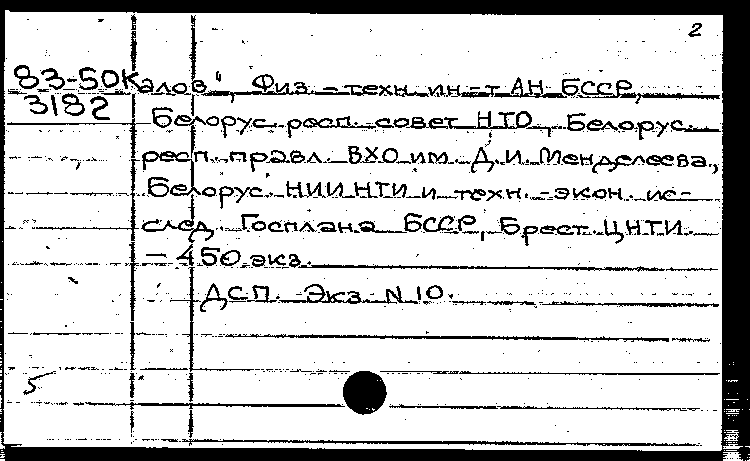 2
83-50калов", Физ.-техн. ин-т АН БССР,
3182 Белорус. респ. совет НТО, Белорус.
респ. правл. ВХО им. Д.И. Менделеева,
Белорус. НИИНТИ и техн.-экон. ис-
след. Госплана БССР, Брест. ЦНТИ.
— 450 экз.
ДСП. Экз. N 10.
5